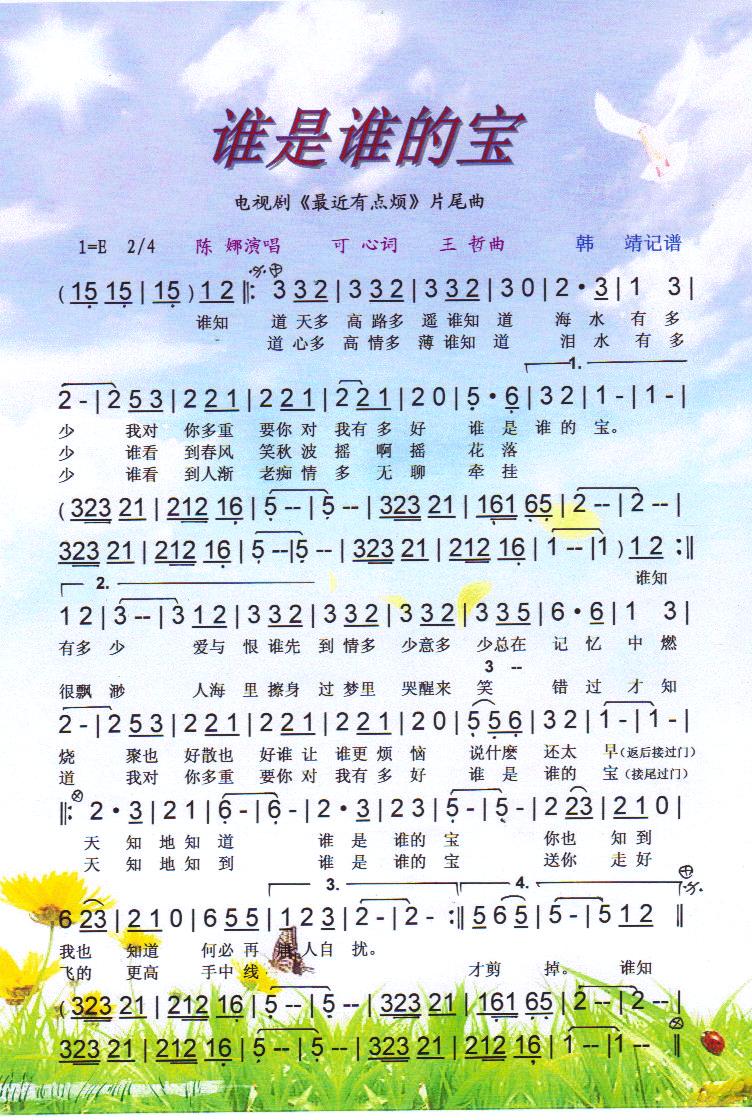 谁是谁的宝
电视剧《最近有点烦》片尾曲
1=E 2/4 陈 娜演唱 可 心词 王 哲曲 韩 靖记谱
( 15 15 | 15 ) 12 ‖: 3 32 | 3 32 | 3 32 | 3 0 | 2·3 | 1 3 |
谁知 道 天多 高 路多 遥 谁知 道 海 水 有 多
道 心多 高 情多 薄 谁知 道 泪 水 有 多
1.
2 - | 2 53 | 2 21 | 2 21 | 2 21 | 2 0 | 5·6 | 3 2 | 1 - | 1 - |
少 我对 你多重 要你 对 我有 多 好 谁 是 谁 的 宝。
少 谁看 到春风 笑秋 波 摇 啊 摇 花 落
少 谁看 到人渐 老痴 情 多 无 聊 牵 挂
( 323 21 | 212 16 | 5 -- | 5 -- | 323 21 | 161 65 | 2 -- | 2 -- |
323 21 | 212 16 | 5 -- | 5 -- | 323 21 | 212 16 | 1 -- | 1 ) 12 :‖
2. 谁知
1 2 | 3 -- | 3 12 | 3 32 | 3 32 | 3 32 | 3 35 | 6·6 | 1 3 |
有 多 少 爱与 恨 谁先 到 情多 少意多 少总在 记 忆 中 燃
3 --
很 飘 渺 人海 里 擦身 过 梦里 哭醒来 笑 错 过 才 知
2 - | 2 53 | 2 21 | 2 21 | 2 21 | 2 0 | 5 56 | 3 2 | 1 - | 1 - |
烧 聚也 好散也 好谁 让 谁更 烦 恼 说什麽 还 太 早(返后接过门)
道 我对 你多重 要你 对 我有 多 好 谁 是 谁的 宝(接尾过门)
‖: 2·3 | 2 1 | 6 - | 6 - | 2·3 | 2 3 | 5 - | 5 - | 2 23 | 2 1 0 |
天 知 地 知 道 谁 是 谁的 宝 你也 知 到
天 知 地 知 到 谁 是 谁的 宝 送你 走 好
3. 4.
6 23 | 2 1 0 | 6 55 | 1 2 3 | 2 - | 2 - :‖ 5 65 | 5 - | 5 12 ‖
我也 知道 何必 再 人自 扰。
飞的 更高 手中 线 才剪 掉。 谁知
( 323 21 | 212 16 | 5 -- | 5 -- | 323 21 | 161 65 | 2 -- | 2 -- |
323 21 | 212 16 | 5 -- | 5 -- | 323 21 | 212 16 | 1 -- | 1 -- ‖